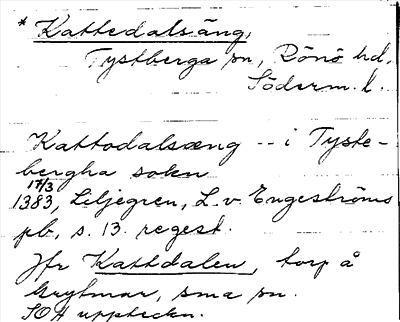 * Kattedalsäng,
Tystberga sn, Rönö hd,
Söderm. l.
Kattodalsæng -- i Tyste-
bergha sokn
17/3
1383, Liljegren, L. v. Engeströms
pb, s. 13. regest.
Jfr Kattdalen, torp å
Grytmar, sma sn.
SOA uppteckn.